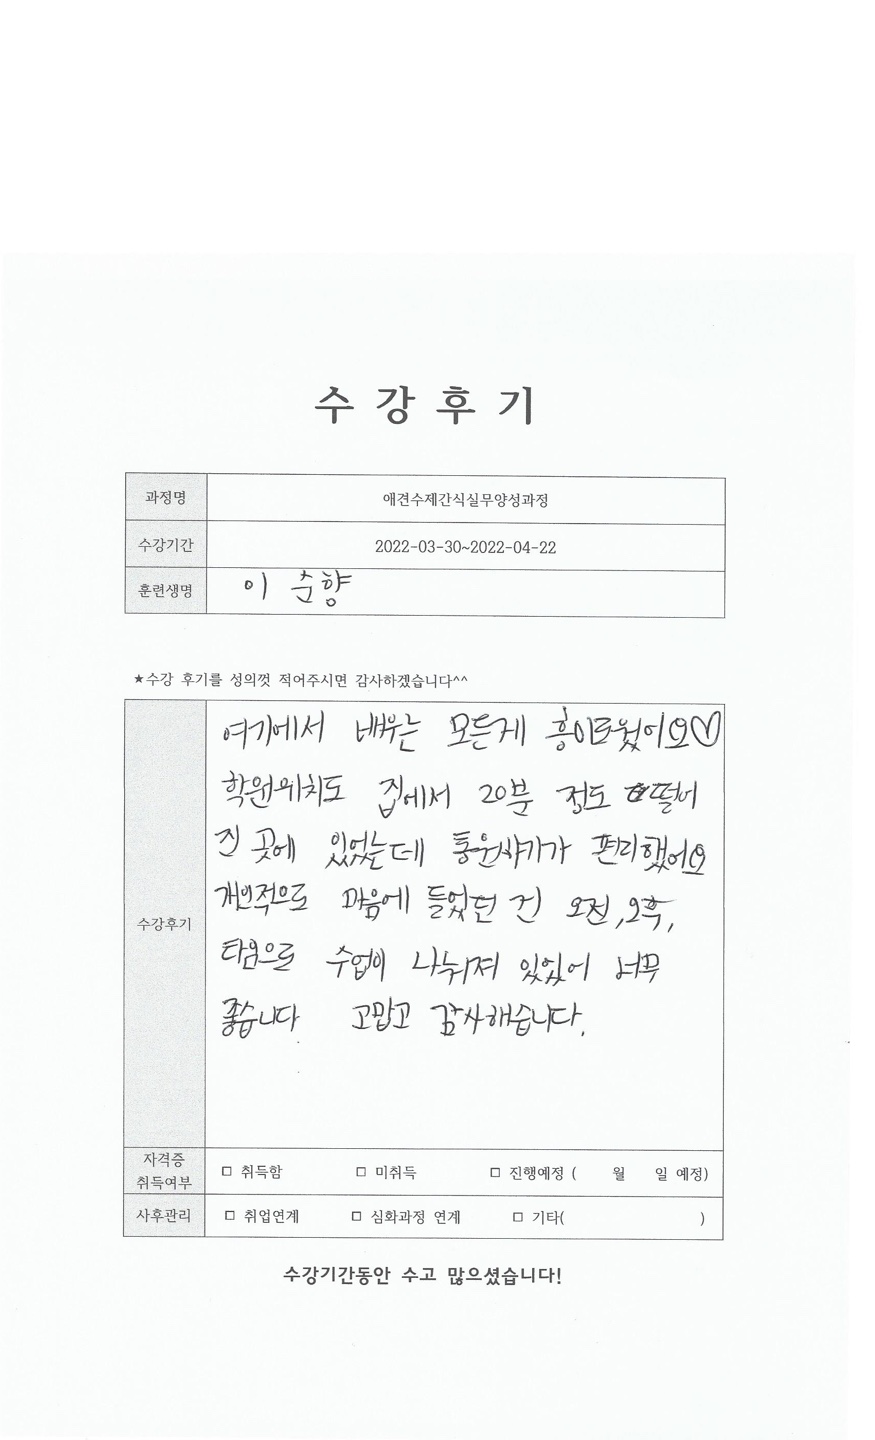 수강후기
과정명 애견수제간식실무양성과정
수강기간 2022-03-30~2022-04-22
훈련생명 이 순향
★수강 후기를 성의껏 적어주시면 감사하겠습니다^^
수강후기
여기에서 배우는 모든게 흥미로웠어요♡
학원위치도 집에서 20분 정도 떨어
진 곳에 있었는데 통원하기가 편리했어요
개인적으로 마음에 들었던 건 오전,오후,
타임으로 수업이 나눠져 있었어 너무
좋습니다 고맙고 감사해습니다.
자격증
취득여부 □ 취득함 □ 미취득 □ 진행예정 ( 월 일 예정)
사후관리 □ 취업연계 □ 심화과정 연계 □ 기타( )
수강기간동안 수고 많으셨습니다!